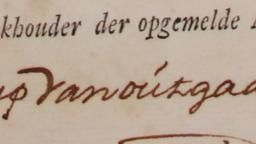 khouder der opgemelde
Vanoútgaa